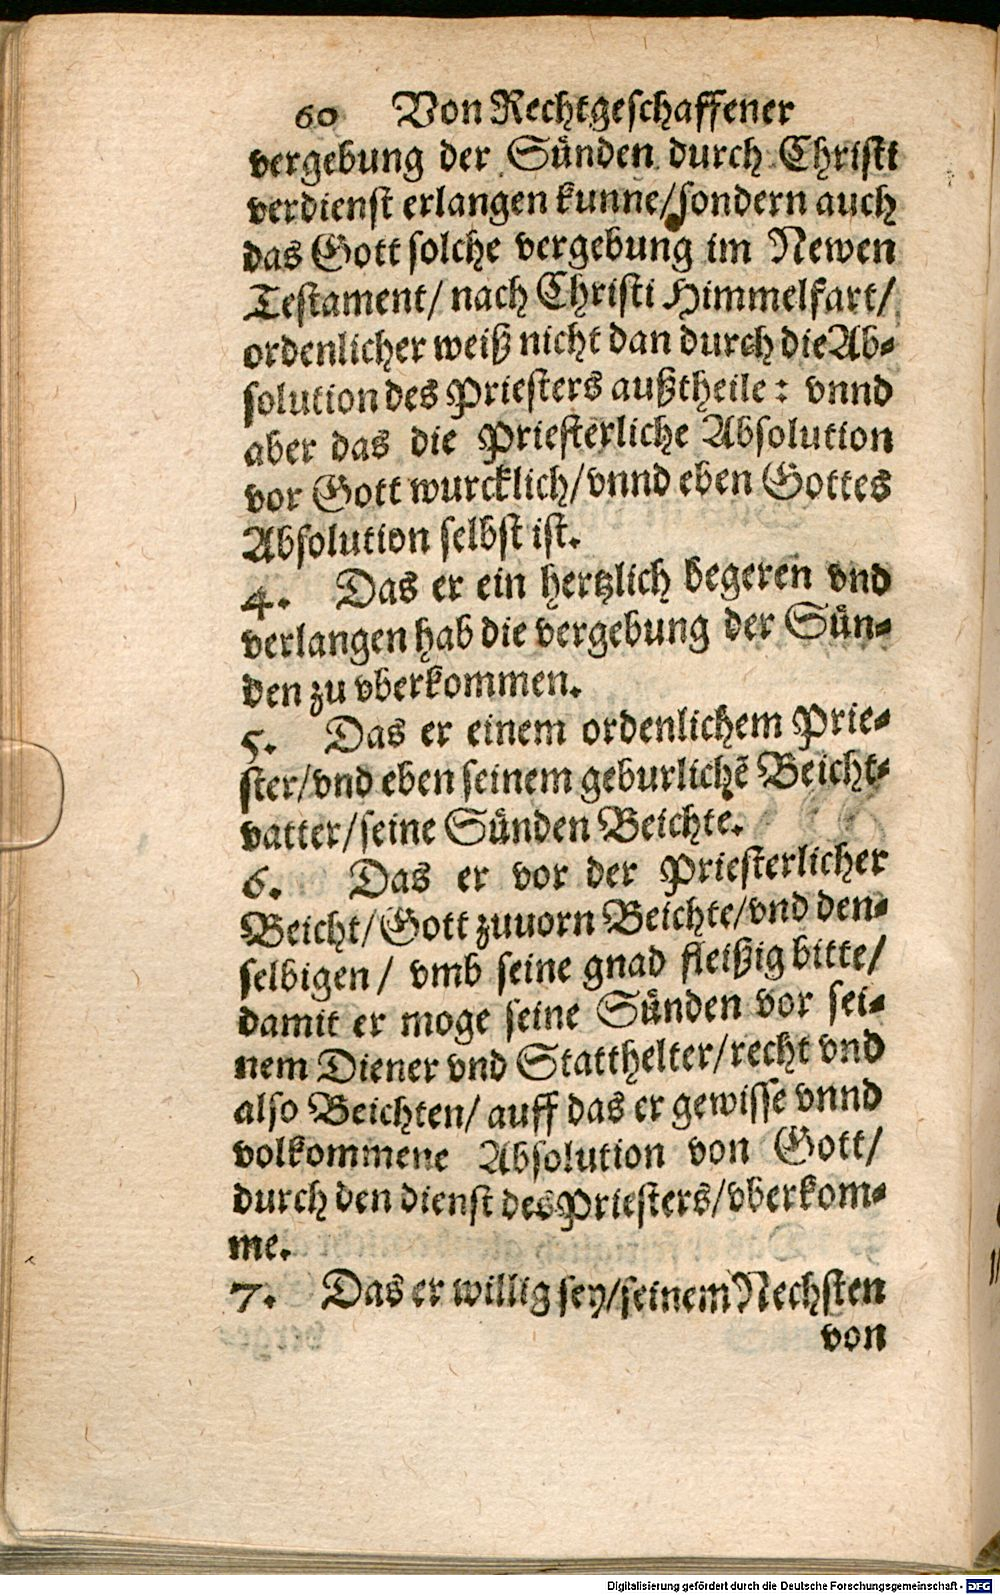 60 Von Rechtgeschaffener
vergebung der Sünden durch Christi
verdienst erlangen kunne/sondern auch
das Gott solche vergebung im Newen
Testament/ nach Christi Himmelfart/
ordenlicher weiß nicht dan durch die Ab⸗
solution des Priesters außtheile: vnnd
aber das die Priesterliche Absolution
vor Gott wurcklich/vnnd eben Gottes
Absolution selbst ist.
4. Das er ein hertzlich begeren vnd
verlangen hab die vergebung der Sün⸗
den zu vberkommen.
5. Das er einem ordenlichem Prie⸗
ster/vnd eben seinem geburlichẽ Beicht⸗
vatter/seine Sünden Beichte.
6. Das er vor der Priesterlicher
Beicht/Gott zuuorn Beichte/vnd den⸗
selbigen/ vmb seine gnad fleißig bitte/
damit er moge seine Sünden vor sei⸗
nem Diener vnd Statthelter/recht vnd
also Beichten/ auff das er gewisse vnnd
volkommene Absolution von Gott/
durch den dienst des Priesters/vberkom⸗
me.
7. Das er willig sey/seinem Nechsten
von
Digitalisierung gefördert durch die Deutsche Forschungsgemeinschaft - DFG